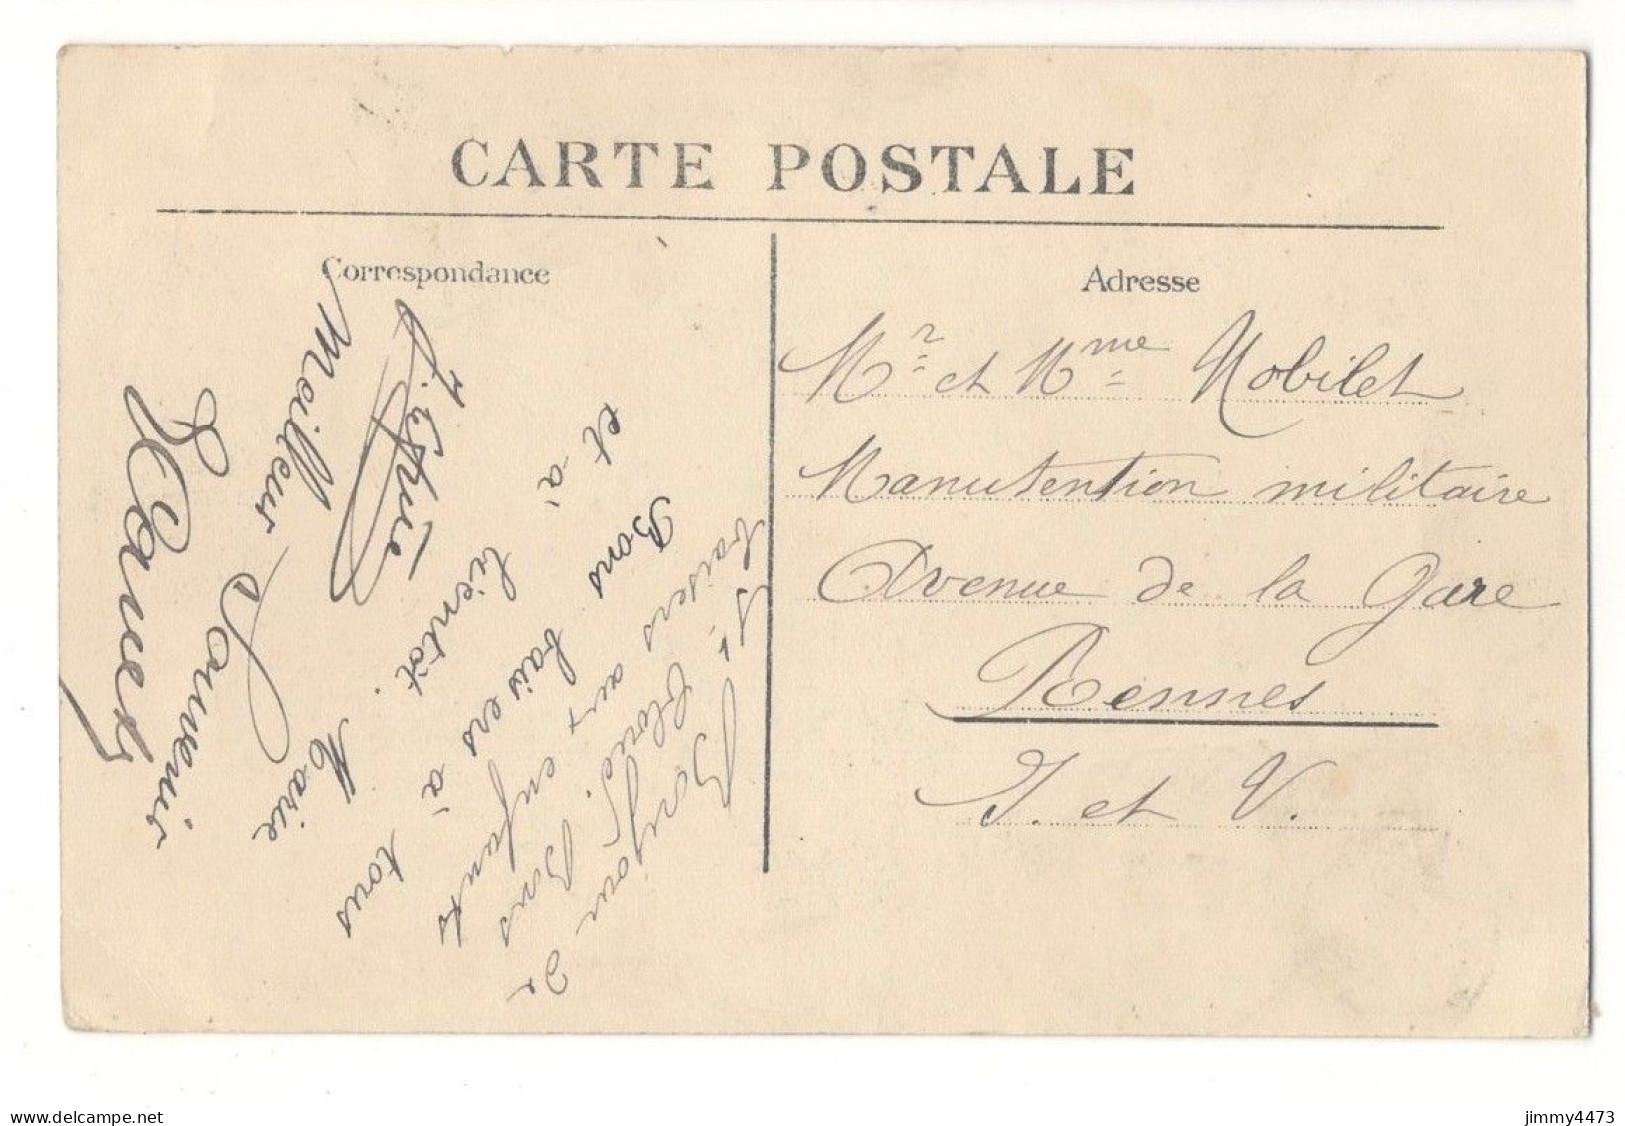 CARTE POSTALE
Correspondance
Bonjour de
St Cloud. Bons
baisers aux enfants
Bons baisers à tous
et à bientôt. Marie
Meilleur Souvenir
Adresse
Mr et Mme Nobilet
Manutention militaire
Avenue de la Gare
Rennes
I. et V.
www.delcampe.net
jimmy4473